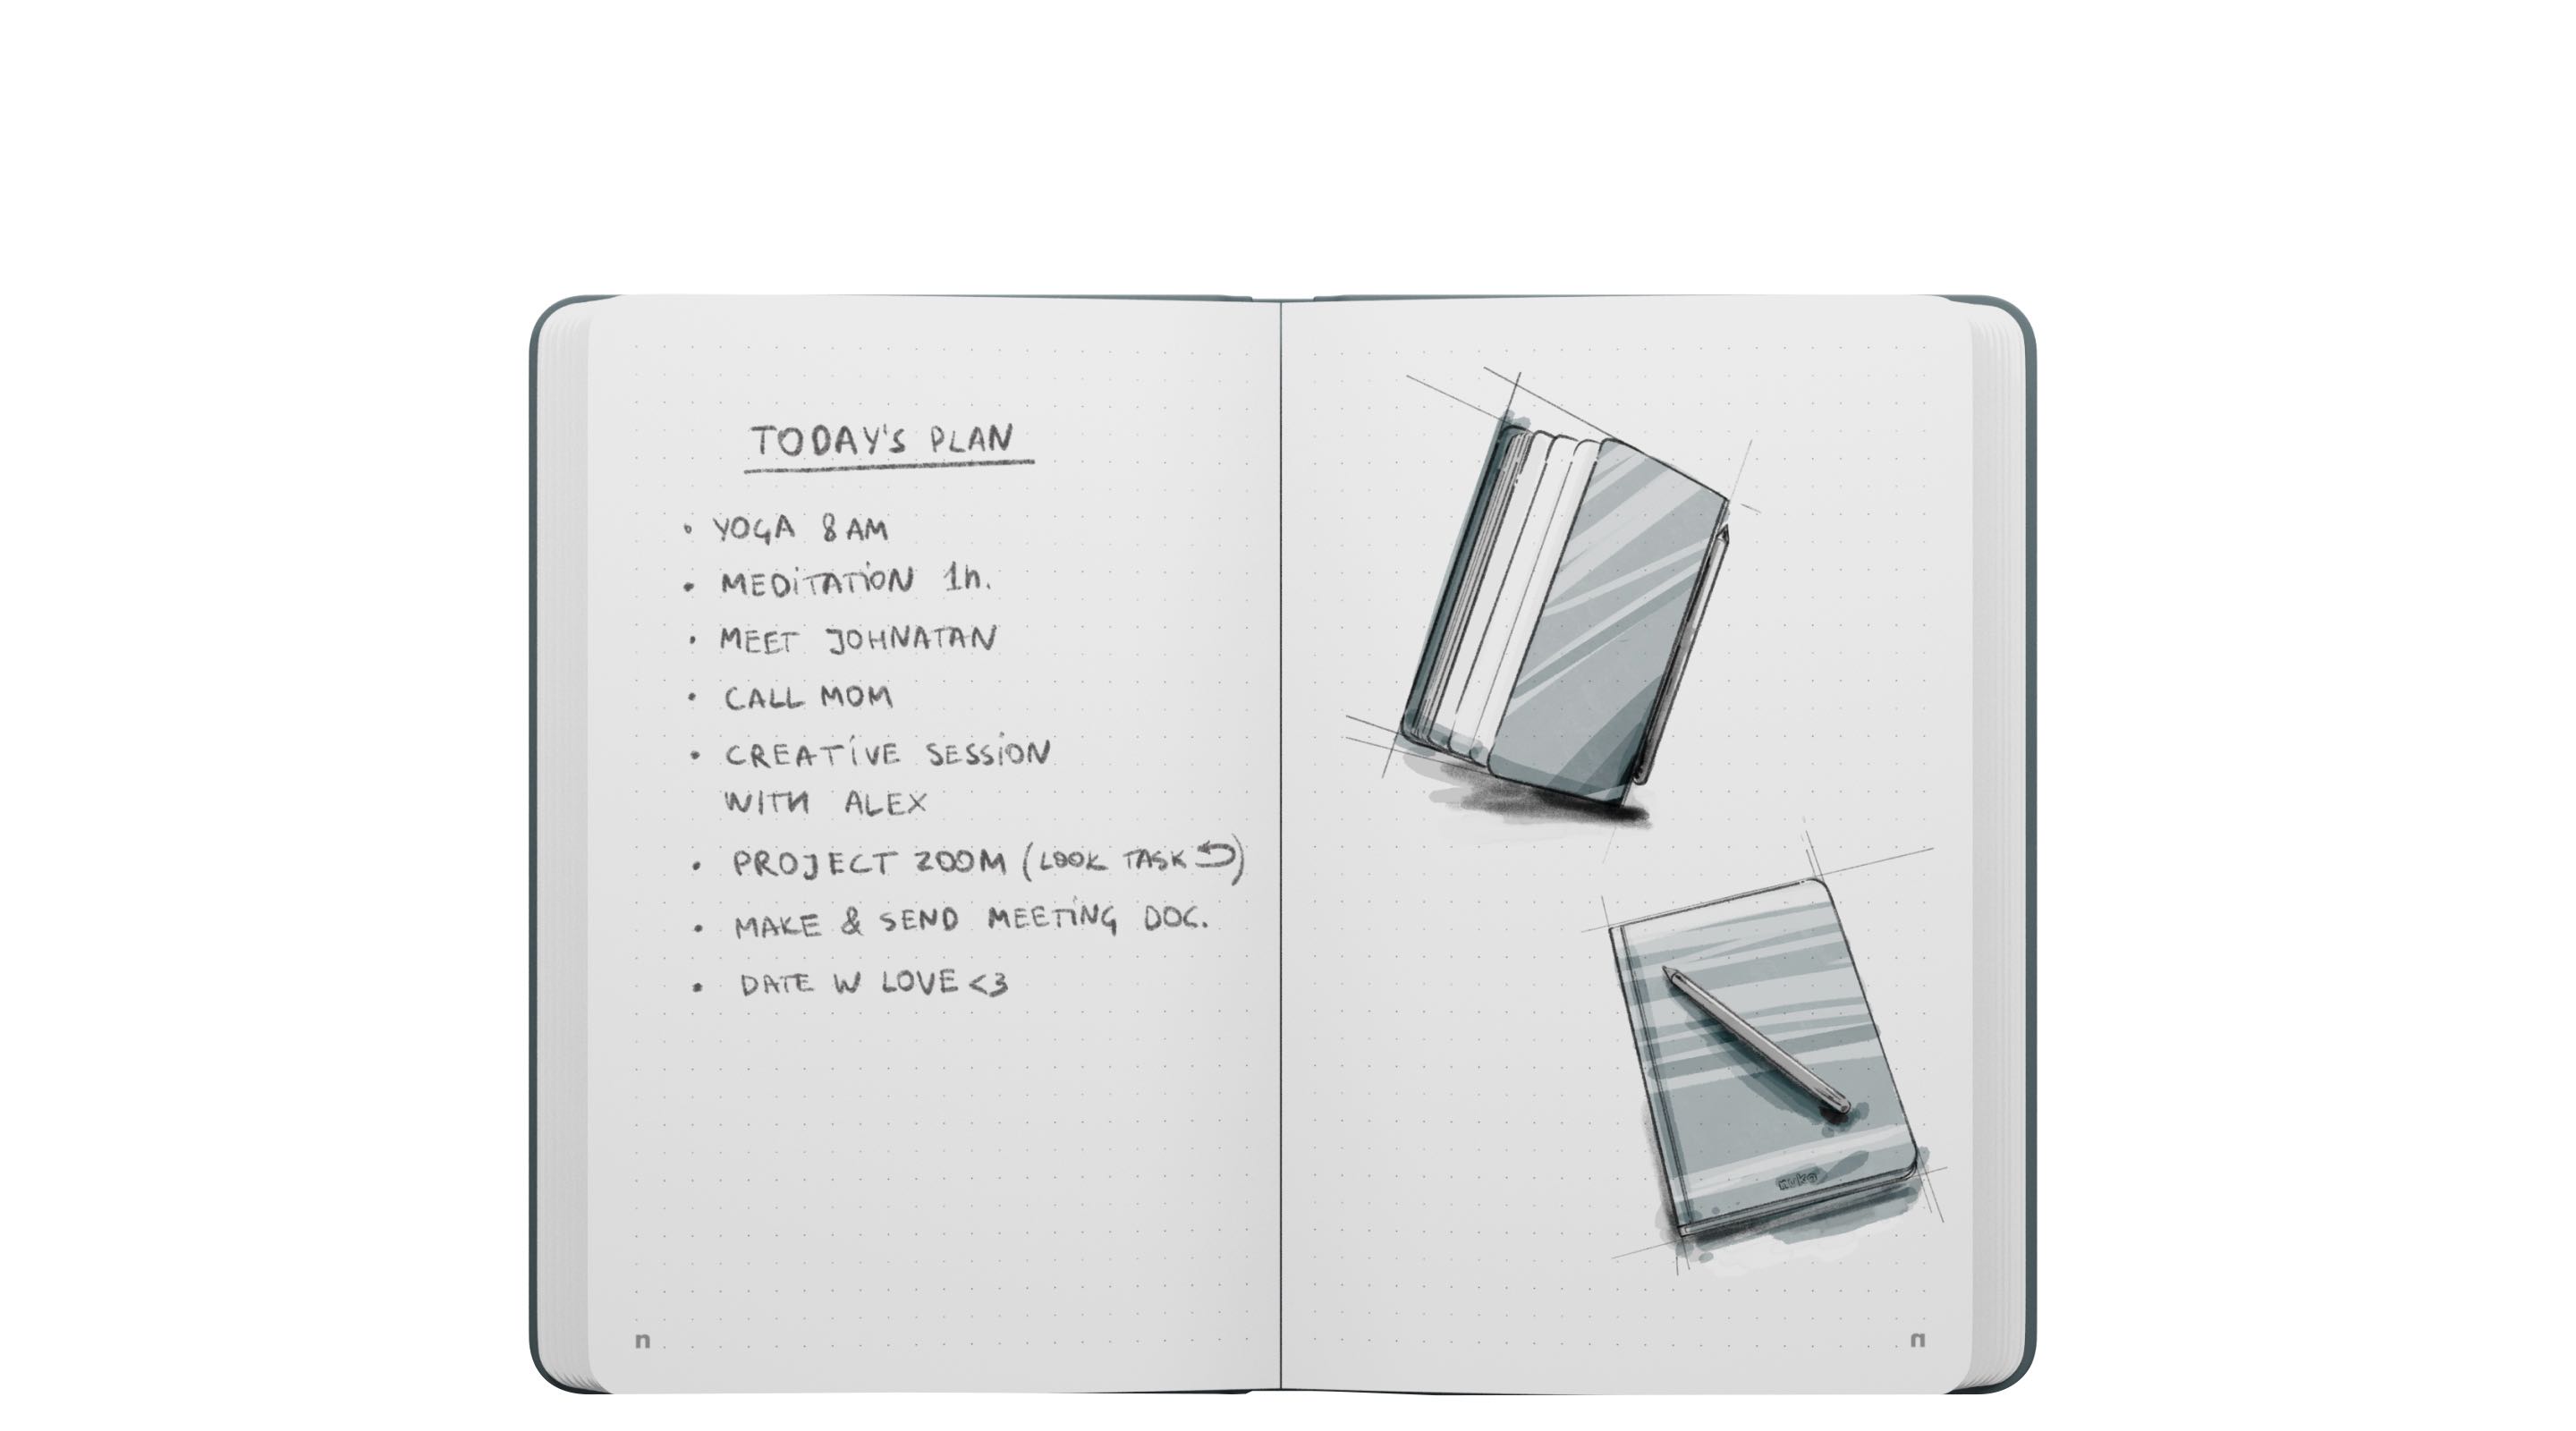 TODAY'S PLAN
• YOGA 8 AM
• MEDiTATiON 1h.
• MEET JOHNATAN
• CALL MOM
• CREATiVE SESSiON
WITH ALEX
• PROJECT ZOOM (LOOK TASK ⮌)
• MAKE & SEND MEETiNG DOC.
• DATE W LOVE <3
nuko
n
n